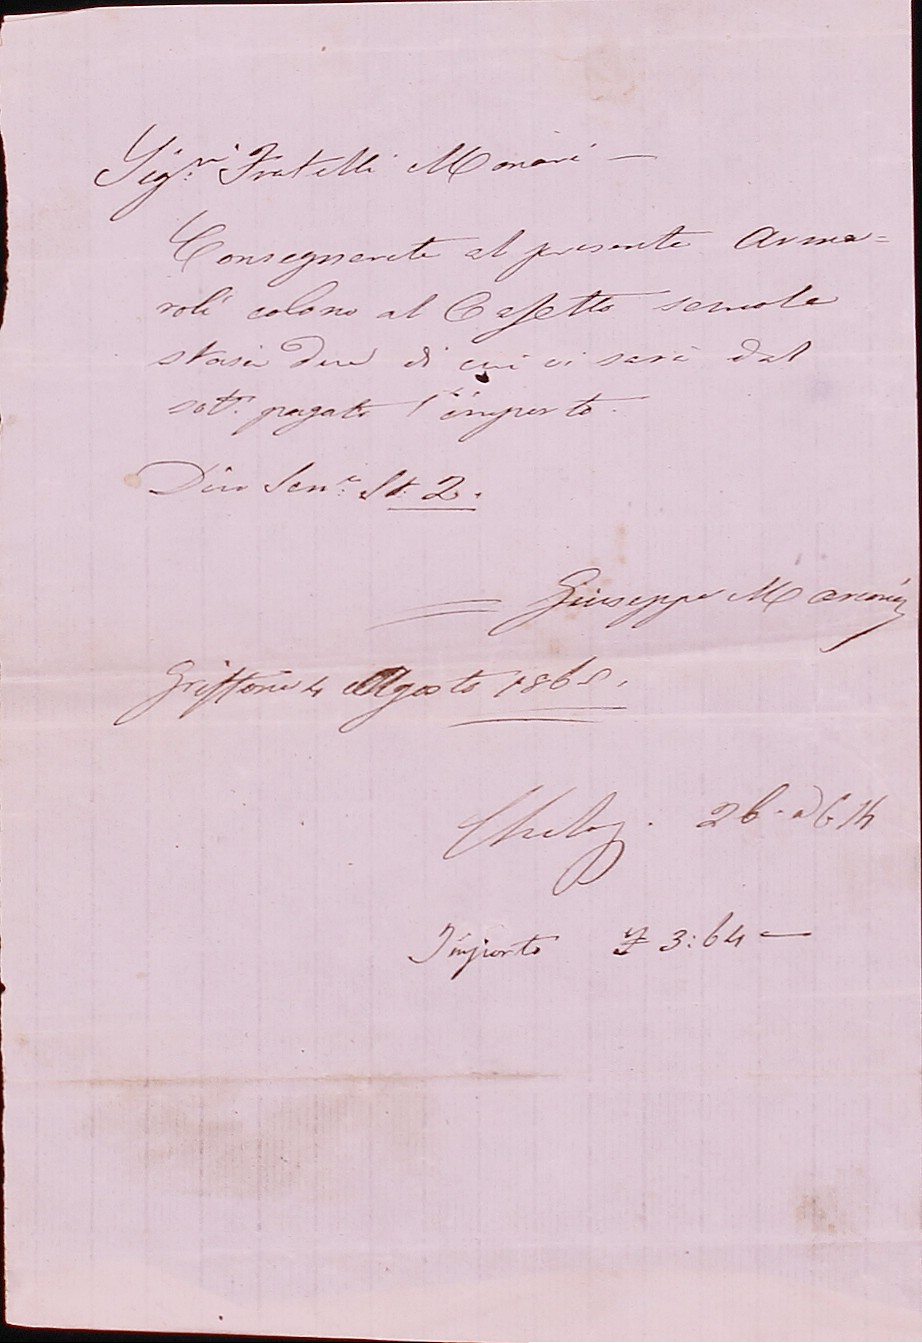 Sig.ri Fratelli Monari —
Consegnerete al presente Arma=
roli colono al Casetto semola
staia due di cui vi sarà dal
sot.o pagato l'importo.
Dico Sem.e St. 2.
Giuseppe Marconi
Griffone 4 Agosto 1865.
26 . a
Importo £ 3:64 —